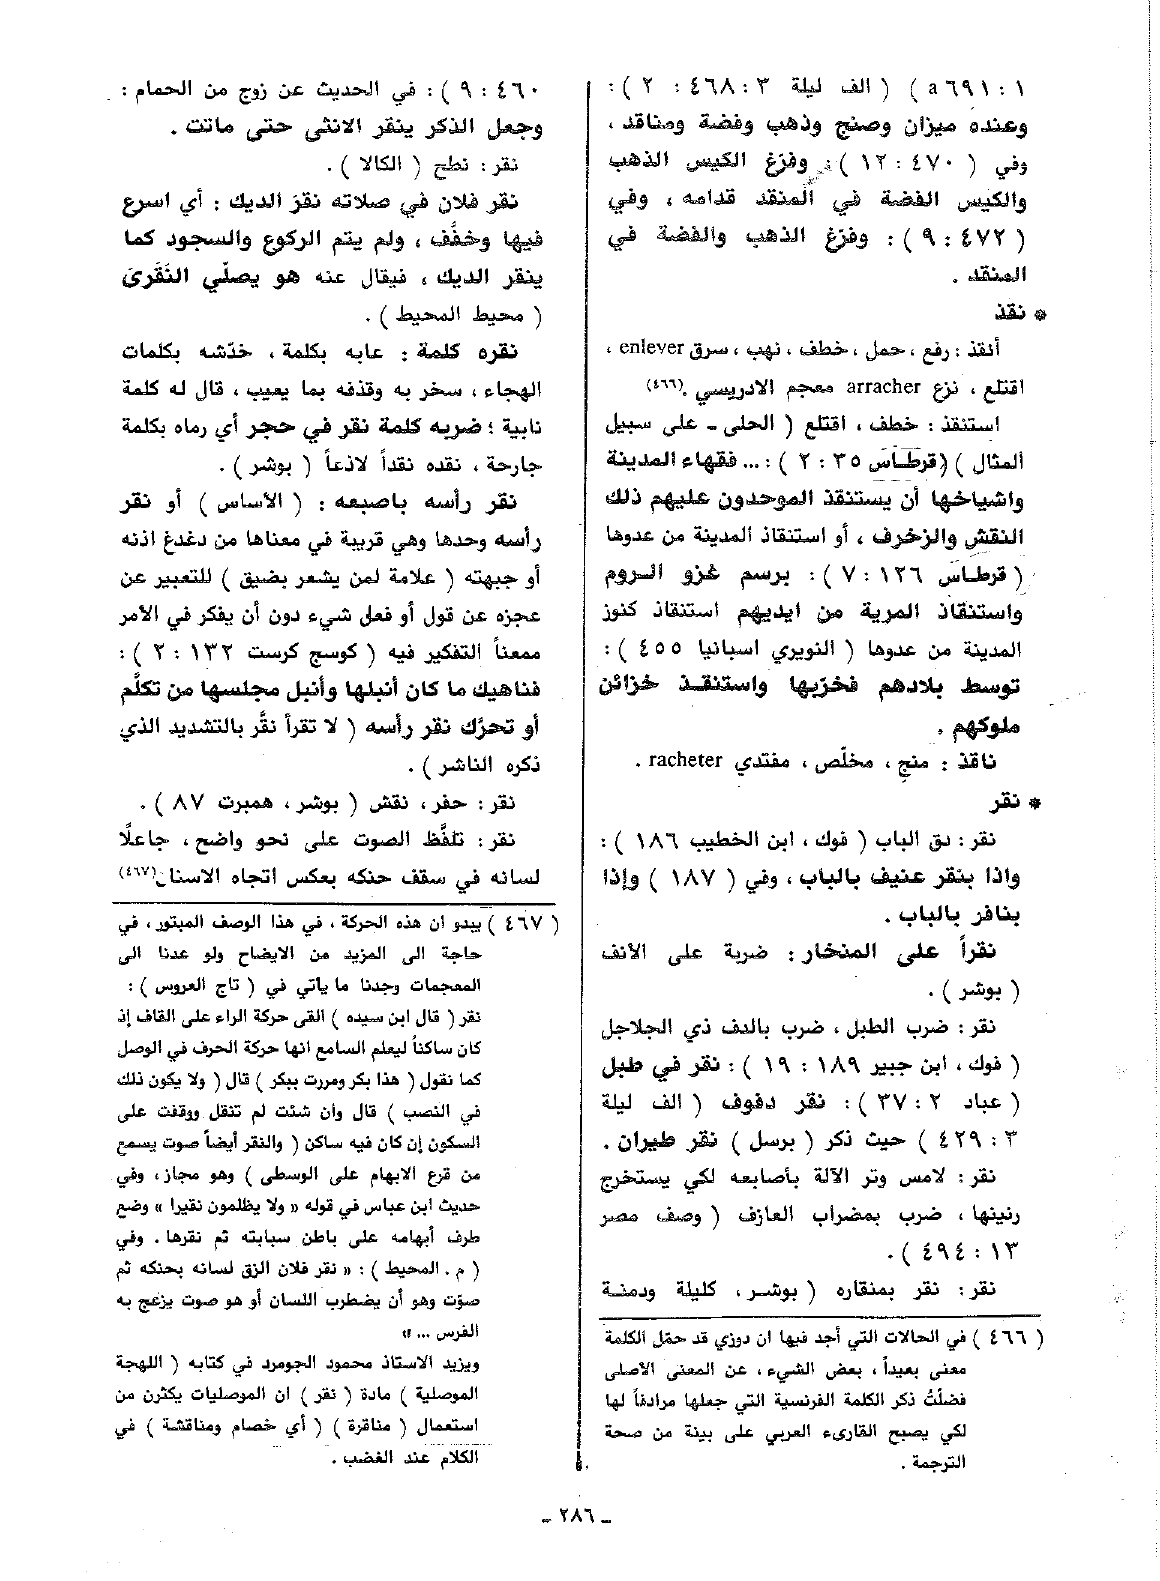 ١ : ٦٩١ a ) ( الف ليلة ٣ : ٤٦٨ : ٢ ) :
وعنده ميزان وصنج وذهب وفضة ومناقد ،
وفي ( ٤٧٠ : ١٢ ) : وفرّغ الكيس الذهب
والكيس الفضة في المنقد قدامه ، وفي
( ٤٧٢ : ٩ ) : وفرّغ الذهب والفضة في
المنقد .
* نقذ
أنقذ : رفع ، حمل ، خطف ، نهب ، سرق enlever ،
اقتلع ، نزع arracher معجم الادريسي .(٤٦٦)
استنقذ : خطف ، اقتلع ( الحلى ـ على سبيل
المثال ) ( قرطاس ٣٥ : ٢ ) : ... فقهاء المدينة
واشياخها أن يستنقذ الموحدون عليهم ذلك
النقش والزخرف ، أو استنقاذ المدينة من عدوها
( قرطاس ١٢٦ : ٧ ) : برسم غزو الروم
واستنقاذ المرية من ايديهم استنقاذ كنوز
المدينة من عدوها ( النويري اسبانيا ٤٥٥ ) :
توسط بلادهم فخرّبها واستنقذ خزائن
ملوكهم .
ناقذ : منج ، مخلّص ، مفتدي racheter .
* نقر
نقر : دق الباب ( فوك ، ابن الخطيب ١٨٦ ) :
واذا بنقر عنيف بالباب ، وفي ( ١٨٧ ) وإذا
بنافر بالباب .
نقراً على المنخار : ضربة على الأنف
( بوشر ) .
نقر : ضرب الطبل ، ضرب بالدف ذي الجلاجل
( فوك ، ابن جبير ١٨٩ : ١٩ ) : نقر في طبل
( عباد ٢ : ٣٧ ) : نقر دفوف ( الف ليلة
٣ : ٤٢٩ ) حيث ذكر ( برسل ) نقر طيران .
نقر : لامس وتر الآلة بأصابعه لكي يستخرج
رنينها ، ضرب بمضراب العازف ( وصف مصر
١٣ : ٤٩٤ ) .
نقر : نقر بمنقاره ( بوشر ، كليلة ودمنة
( ٤٦٦ ) في الحالات التي أجد فيها ان دوزي قد حمّل الكلمة
معنى بعيداً ، بعض الشيء ، عن المعنى الاصلي
فضلتُ ذكر الكلمة الفرنسية التي جعلها مرادفاً لها
لكي يصبح القارىء العربي على بينة من صحة
الترجمة .
٤٦٠ : ٩ ) : في الحديث عن زوج من الحمام :
وجعل الذكر ينقر الانثى حتى ماتت .
نقر : نطح ( الكالا ) .
نقر فلان في صلاته نقرَ الديك : أي اسرع
فيها وخفَّف ، ولم يتم الركوع والسجود كما
ينقر الديك ، فيقال عنه هو يصلّي النَقَرىَ
( محيط المحيط ) .
نقره كلمة : عابه بكلمة ، خدّشه بكلمات
الهجاء ، سخر به وقذفه بما يعيب ، قال له كلمة
نابية ؛ ضربه كلمة نقر في حجر أي رماه بكلمة
جارحة ، نقده نقداً لاذعاً ( بوشر ) .
نقر رأسه باصبعه : ( الأساس ) أو نقر
رأسه وحدها وهي قريبة في معناها من دغدغ اذنه
أو جبهته ( علامة لمن يشعر بضيق ) للتعبير عن
عجزه عن قول أو فعل شيء دون أن يفكر في الامر
ممعناً التفكير فيه ( كوسج كرست ١٣٢ : ٢ ) :
فناهيك ما كان أنبلها وأنبل مجلسها من تكلَّم
أو تحرَّك نقر رأسه ( لا تقرأ نقَّر بالتشديد الذي
ذكره الناشر ) .
نقر : حفر ، نقش ( بوشر ، همبرت ٨٧ ) .
نقر : تلفَّظ الصوت على نحو واضح ، جاعلًا
لسانه في سقف حنكه بعكس اتجاه الاسنان(٤٦٧)
( ٤٦٧ ) يبدو ان هذه الحركة ، في هذا الوصف المبتور ، في
حاجة الى المزيد من الايضاح ولو عدنا الى
المعجمات وجدنا ما ياتي في ( تاج العروس ) :
نقر ( قال ابن سيده ) القى حركة الراء على القاف إذ
كان ساكناً ليعلم السامع انها حركة الحرف في الوصل
كما نقول ( هذا بكر ومررت ببكر ) قال ( ولا يكون ذلك
في النصب ) قال وان شئت لم تنقل ووقفت على
السكون إن كان فيه ساكن ( والنقر أيضاً صوت يسمع
من قرع الابهام على الوسطى ) وهو مجاز ، وفي
حديث ابن عباس في قوله « ولا يظلمون نقيرا » وضع
طرف أبهامه على باطن سبابته ثم نقرها . وفي
( م . المحيط ) : « نقر فلان الزق لسانه بحنكه ثم
صوّت وهو أن يضطرب اللسان أو هو صوت يزعج به
الفرس ... »
ويزيد الاستاذ محمود الجومرد في كتابه ( اللهجة
الموصلية ) مادة ( نقر ) ان الموصليات يكثرن من
استعمال ( مناقرة ) ( أي خصام ومناقشة ) في
الكلام عند الغضب .
ـ ٢٨٦ ـ